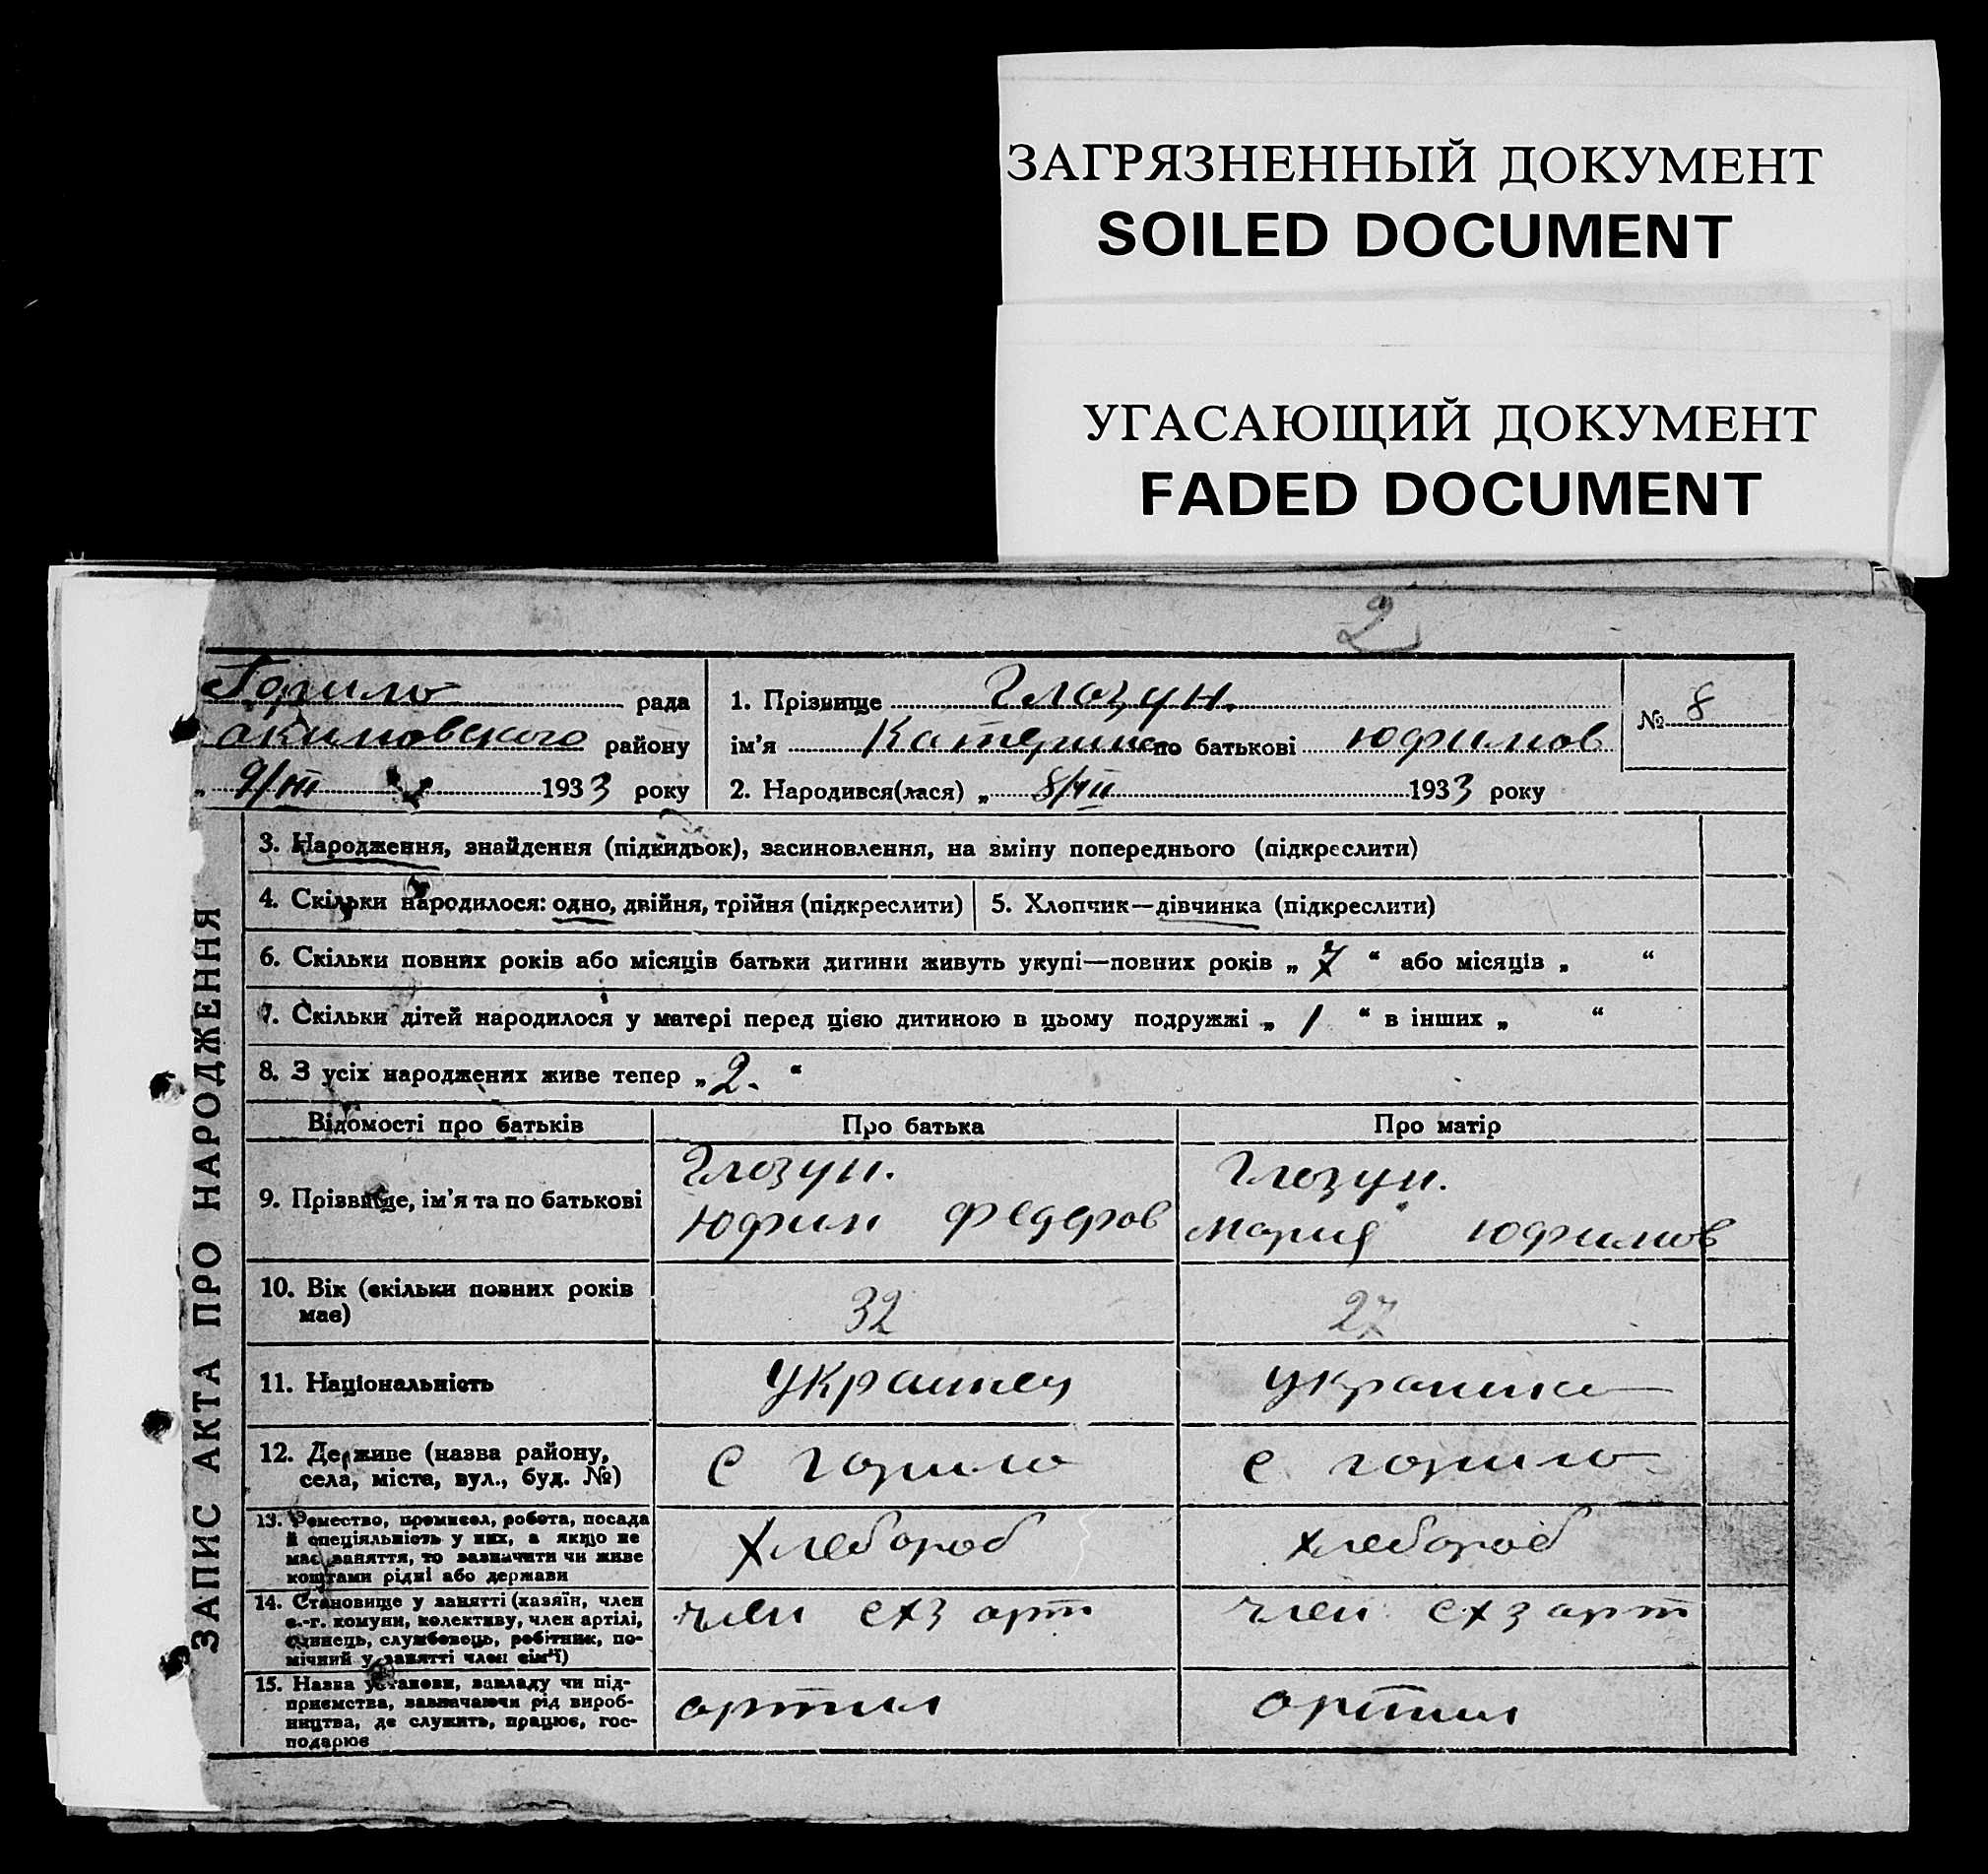 ЗАГРЯЗНЕННЫЙ ДОКУМЕНТ
SOILED DOCUMENT
УГАСАЮЩИЙ ДОКУМЕНТ
FADED DOCUMENT
2
рада
району
9/VIII 1933 року
1. Прізвище Глозун.
ім'я Катерина по батькові Юфимов
2. Народився(лася) „ 8/VIII 1933 року
№ 8
ЗАПИС АКТА ПРО НАРОДЖЕННЯ
3. Народження, знайдення (підкидьок), засиновлення, на зміну попереднього (підкреслити)
4. Скільки народилося: одно, двійня, трійня (підкреслити) 5. Хлопчик—дівчинка (підкреслити)
6. Скільки повних років або місяців батьки дитини живуть укупі—повних років „ 7 “ або місяців „ “
7. Скільки дітей народилося у матері перед цією дитиною в цьому подружжі „ 1 “ в інших „ “
8. З усіх народжених живе тепер „ 2. “
Відомості про батьків Про батька Про матір
9. Прізвище, ім'я та по батькові
Глозун.
Юфим Федеров
Глозун.
Мария Юфимов
10. Вік (скільки повних років
має)
32
27
11. Національність
Украинец
украинка
12. Де живе (назва району,
села, міста, вул., буд. №)
13. Ремество, промисел, робота, посада
й спеціяльність у них, а якщо не
має заняття, то зазначити чи живе
коштами рідні або держави
Хлебороб
хлебороб
14. Становище у занятті (хазяїн, член
с.-г. комуни, колективу, член артілі,
одинець, службовець, робітник, по-
мічний у занятті член сім'ї)
член схз арт
член схз арт
15. Назва установи, закладу чи під-
приємства, зазначаючи рід вироб-
ництва, де служить, працює, гос-
подарює
артил
артил